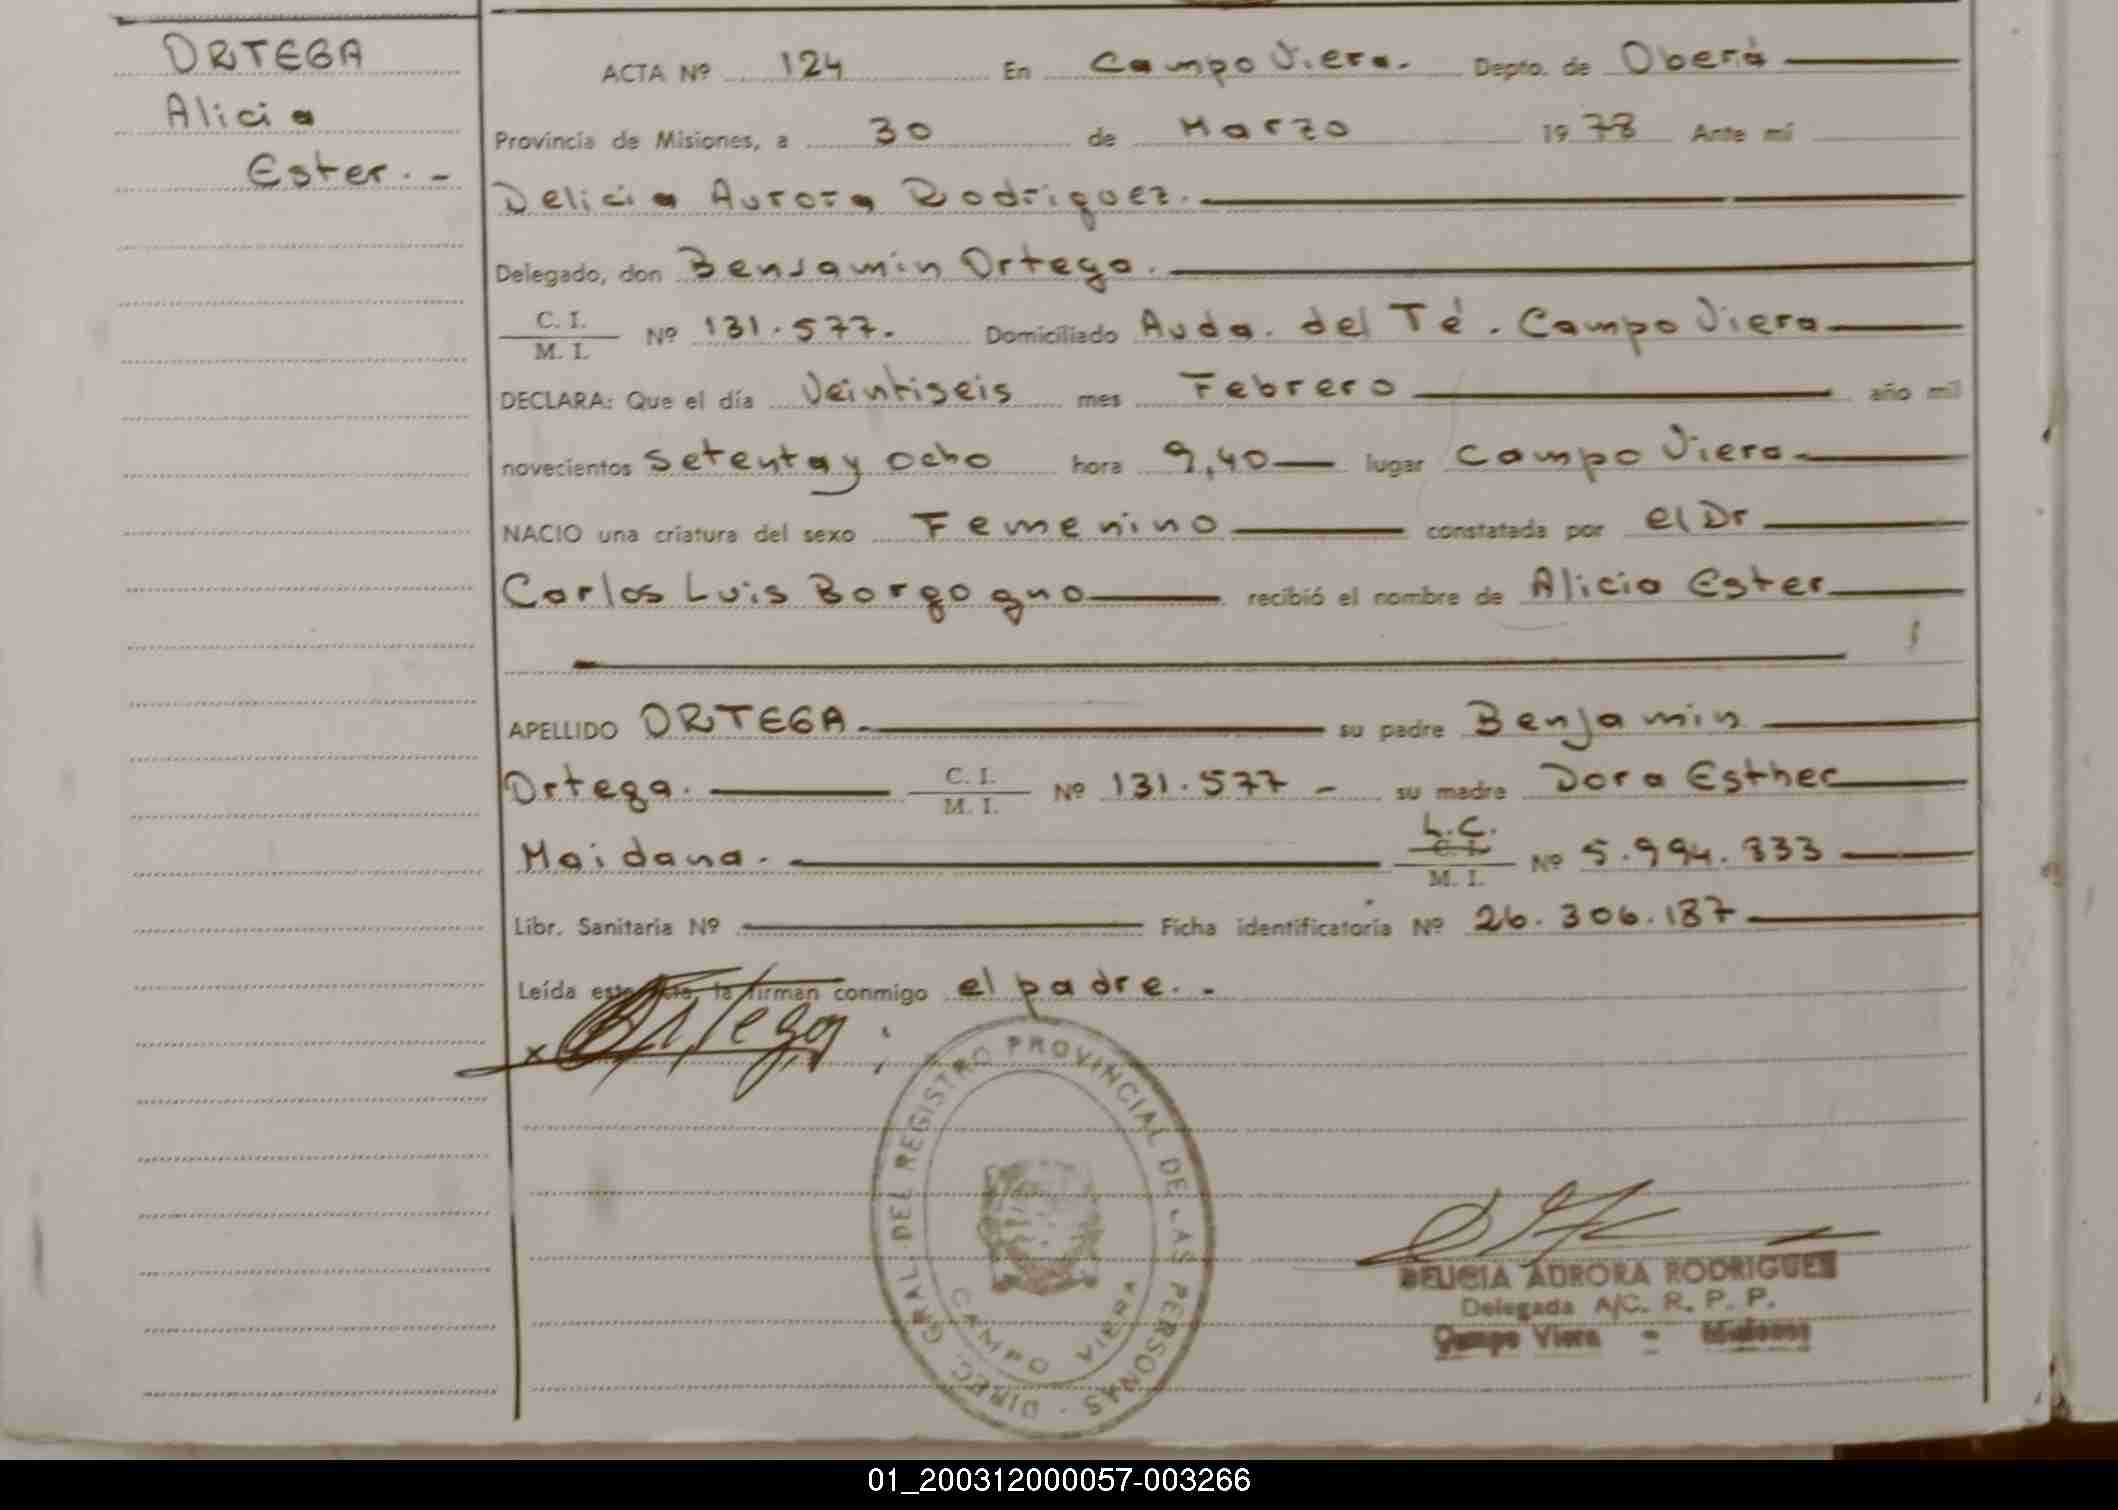 ORTEGA
Alicia
Ester.-
ACTA Nº 124 En Campo Viera. Depto. de Oberá
Provincia de Misiones, a 30 de Marzo 1978 Ante mí
Delicia Aurora Rodriguez.
Delegado, don Benjamin Ortega.
C. I. / M. I. Nº 131.577. Domiciliado Avda. del Té. Campo Viera
DECLARA: Que el día Veintiseis mes Febrero año mil
novecientos setenta y ocho hora 9,40 lugar Campo Viera
NACIO una criatura del sexo Femenino constatada por el Dr
Carlos Luis Borgogno recibió el nombre de Alicia Ester
APELLIDO ORTEGA. su padre Benjamin
Ortega. C. I. / M. I. Nº 131.577 - su madre Dora Esther
Maidana. L.C. C. I. / M. I. Nº 5.994.333
Libr. Sanitaria Nº Ficha identificatoria Nº 26.306.187
Leída esta acta, la firman conmigo el padre.-
x Ortega
DIREC. GRAL. DEL REGISTRO PROVINCIAL DE LAS PERSONAS
CAMPO VIERA
DELICIA AURORA RODRIGUEZ
Delegada A/C. R. P. P.
Campo Viera - Misiones
01_200312000057-003266